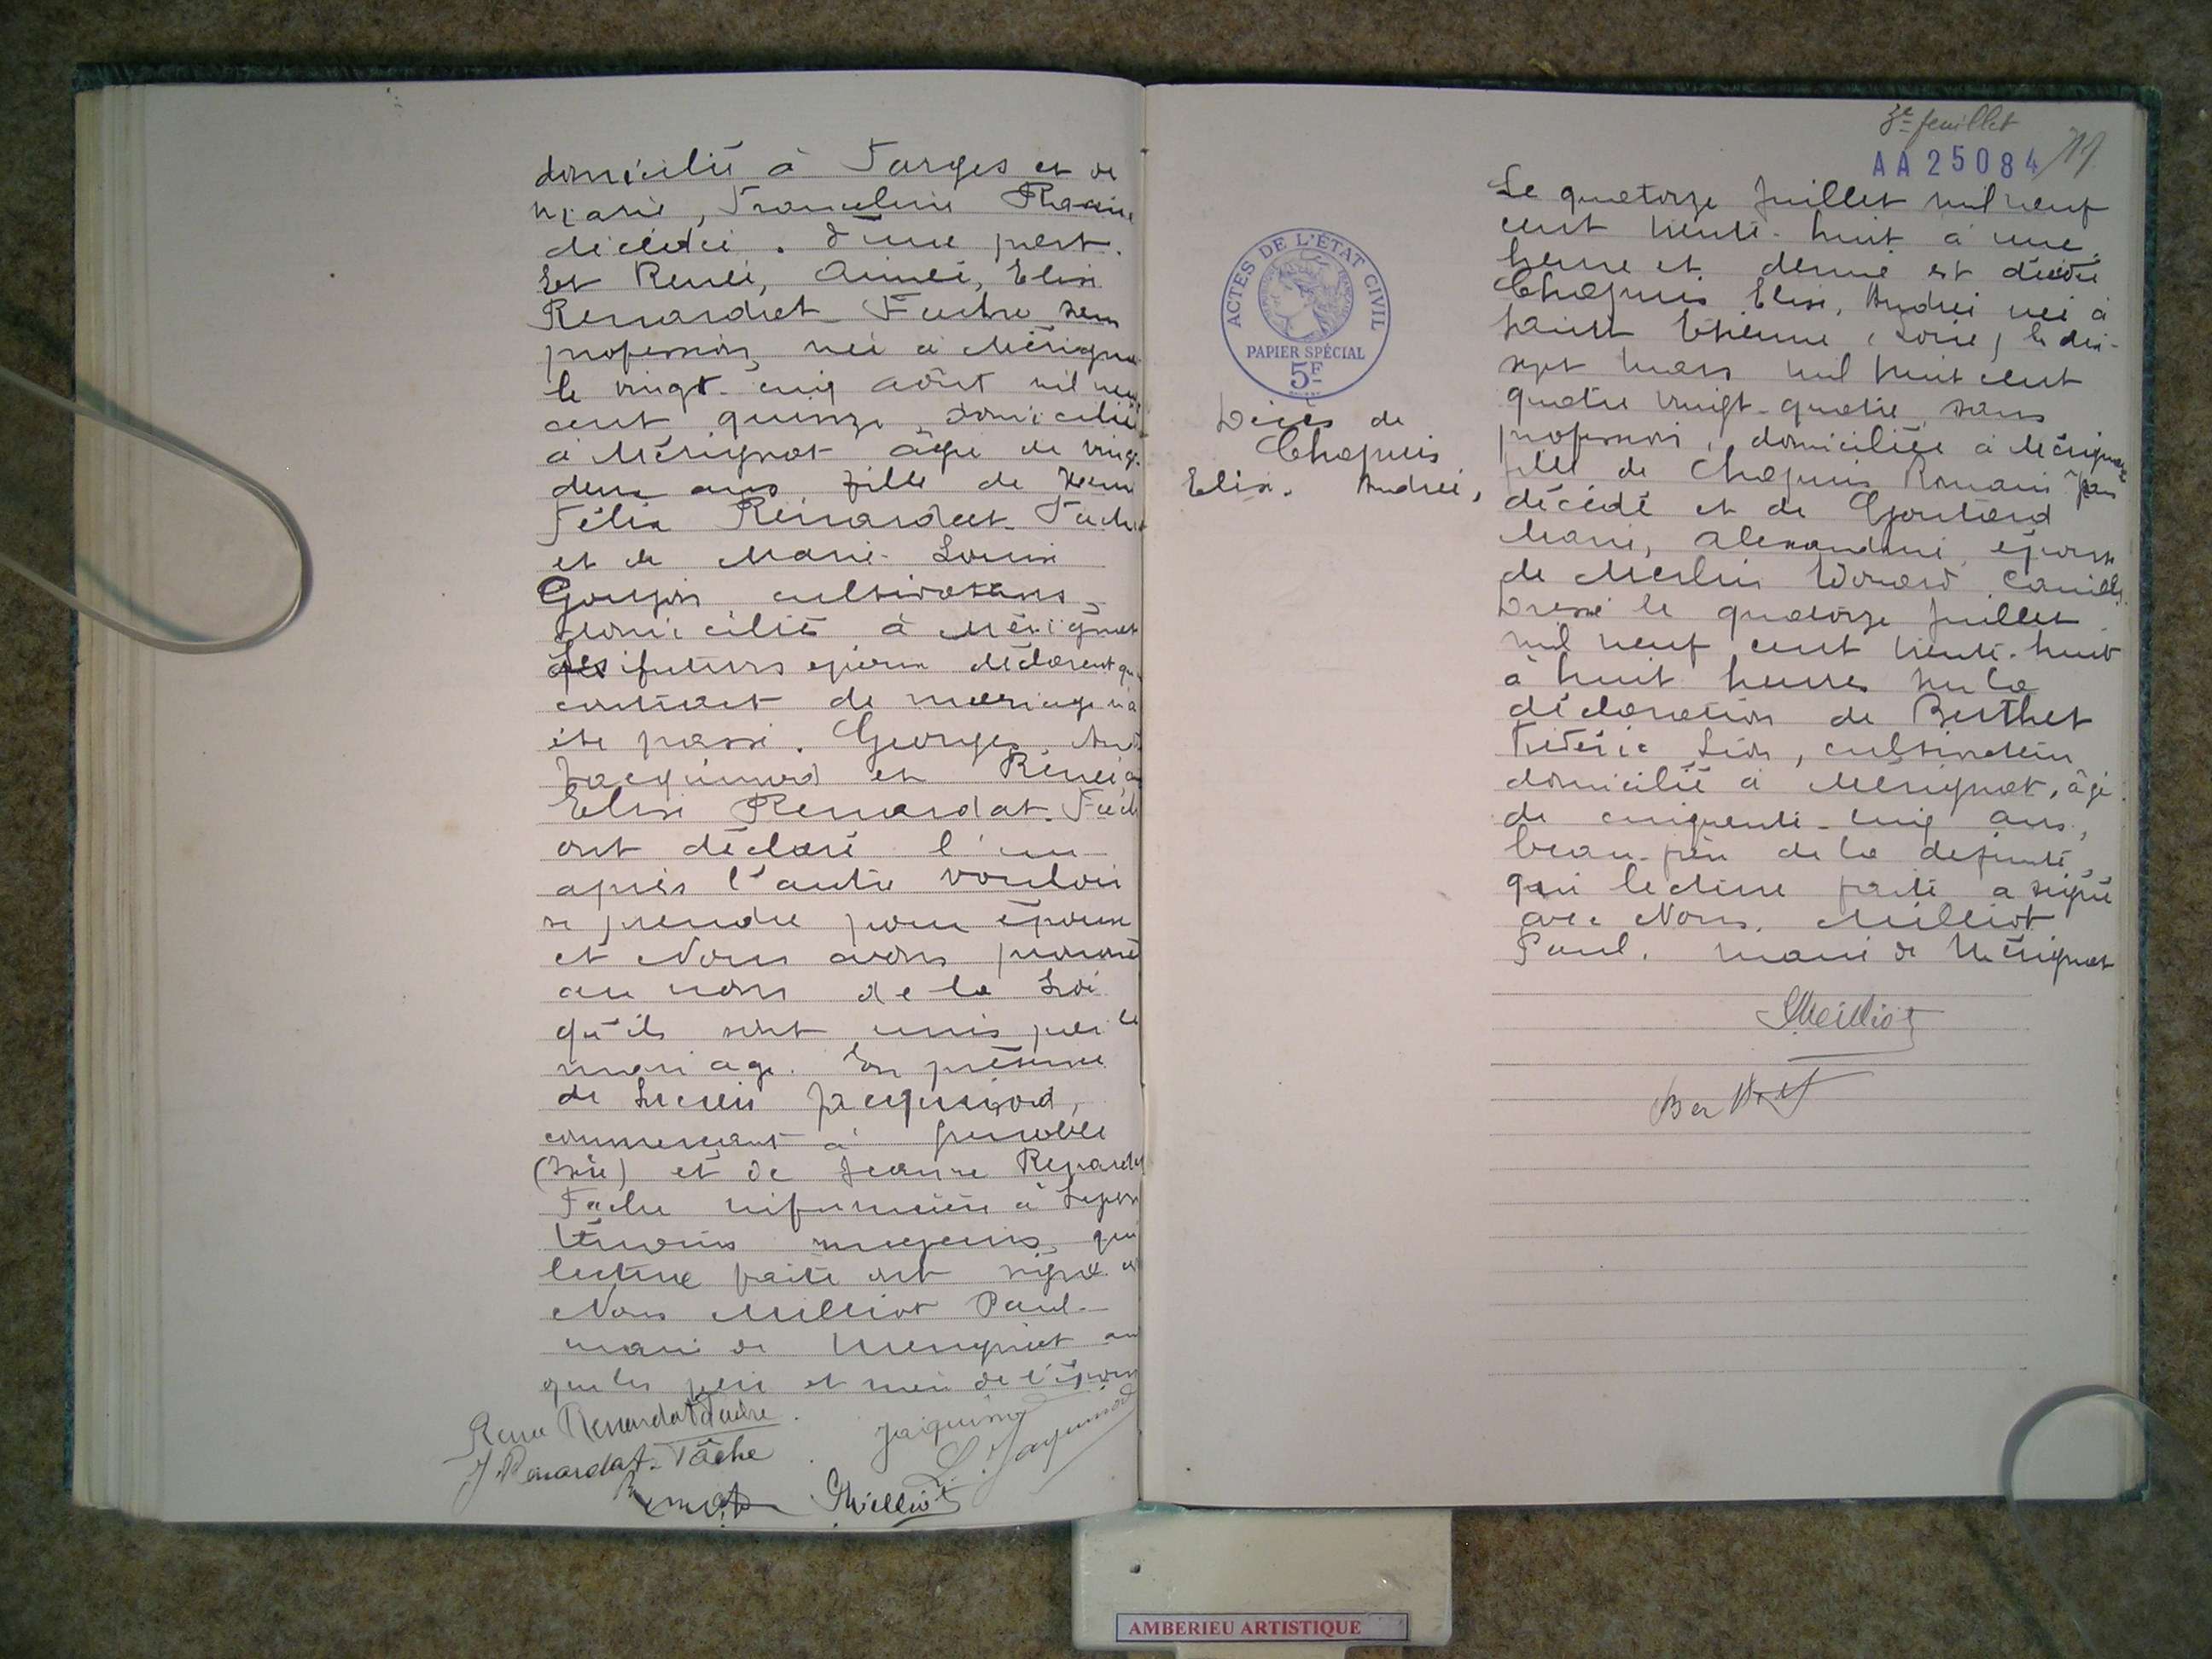 domicilié à Farges et de
Marie, Franceline
décédée. d'une part.
Et Renée, Aimée, Elise
Renardat Fache sans
profession, née à Mérignat
le vingt-cinq août mil neuf
cent quinze domiciliée
à Mérignat âgée de vingt
deux ans fille de Henri
Félix Renardat-Fache
et de Marie-Louise
Goujon cultivateurs
domiciliés à Mérignat
Les futurs époux déclarent qu
contrat de mariage n'a
été passé. Georges,
Jacquinod et Renée
Elise Renardat-Fach
ont déclaré l'un
après l'autre vouloir
se prendre pour époux
et Nous avons prononcé
au nom de la Loi
qu'ils sont unis par le
mariage. En présence
de Lucien Jacquinod,
commerçant à Grenoble
(Isère) et de Jeanne Renardat
Fache infirmière à
témoins majeurs, qui
lecture faite ont signé
Nous Milliot Paul
maire de Mérignat
que les père et mère de l'épouse
Renée Renardat Fache
Jacquinod
J Renardat-Fâche
L. Jacquinod
PMilliot
3e feuillet
AA 25084
ACTES DE L'ÉTAT CIVIL
PAPIER SPÉCIAL
5F
Décès de
Chapuis
Elise. Andrée,
Le quatorze Juillet mil neuf
cent trente-huit à une
heure et demie est décédée
Chapuis Elise, Andrée née à
Saint Etienne (Loire) le dix-
sept mars mil huit cent
quatre vingt-quatre sans
profession, domiciliée à Mérignat
fille de Chapuis Romain
décédé et de Goutard
Marie, Alexandrine épouse
de Merlin Edouard Camille.
Dressé le quatorze Juillet
mil neuf cent trente-huit
à huit heures sur la
déclaration de Berthet
Frédéric Léon, cultivateur
domicilié à Mérignat, âgé
de cinquante-cinq ans,
beau-père de la defunte,
qui lecture faite a signé
avec Nous. Milliot
Paul. maire de Mérignat
PMilliot
Berthet
AMBERIEU ARTISTIQUE